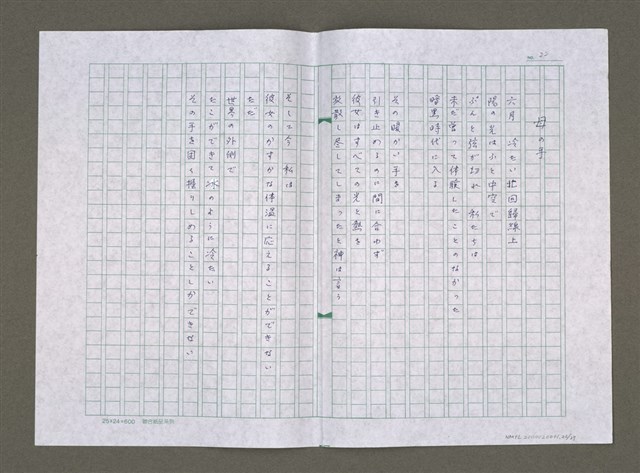 No. 22
母の手
六月 冷たい北回歸線上
陽の光はふと中空で
ぷんと弦が切れ 私たちは
未だ嘗って体験したことのなかった
暗黒時代に入る
その暖かい手を
引き止めるのに間に合わず
彼女はすべての光と熱を
放散し尽してしまったと神は言う
そして今 私は
彼女のかすかな体温に応えることができない
ただ
世界の外側で
たこができて氷のように冷たい
その手を固く握りしめることしかできない
25×24=600